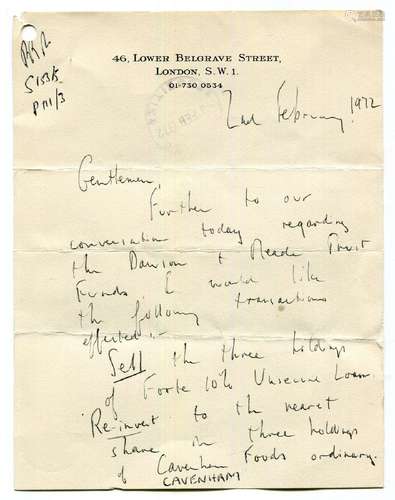 S153/5
PM1/3
46, LOWER BELGRAVE STREET,
LONDON, S.W.1.
01-730 0534
2nd February 1972
Gentlemen,
Further to our
conversation today regarding
the Dawson + Meade Trust
Funds I would like
the following transactions
effected:-
Sell the three holdings
of Forte 10% Unsecured Loan.
Re-invest to the nearest
share in three holdings
of Cavenham Foods ordinary.
CAVENHAM